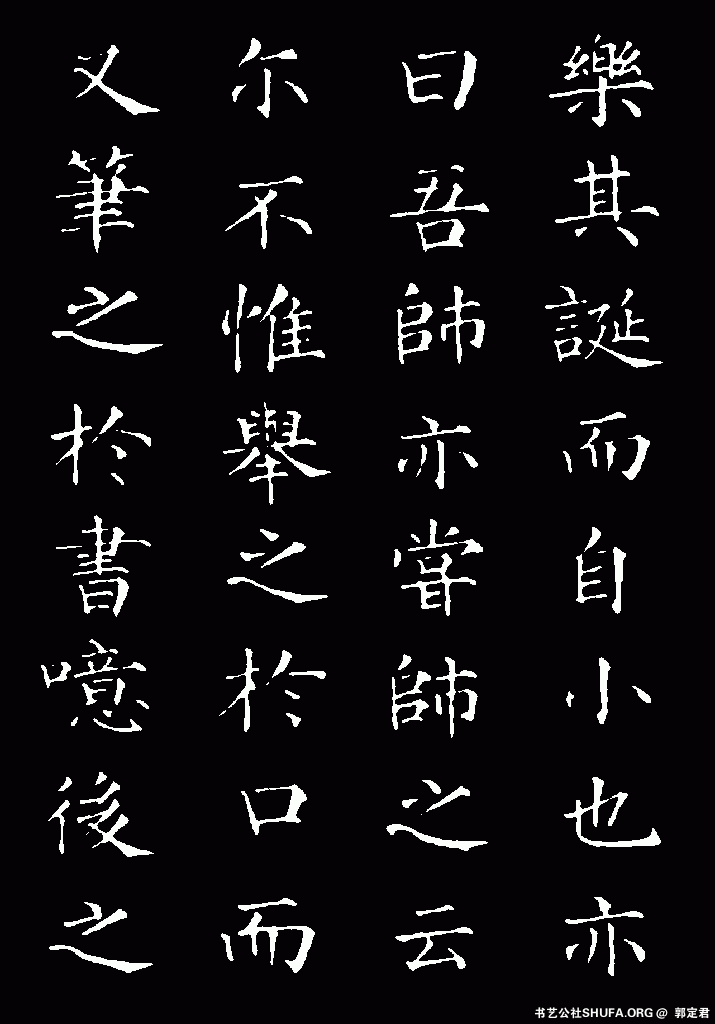 樂其誕而自小也亦
曰吾師亦嘗師之云
尓不惟舉之於口而
又筆之於書噫後之
书艺公社SHUFA.ORG @ 郭定君